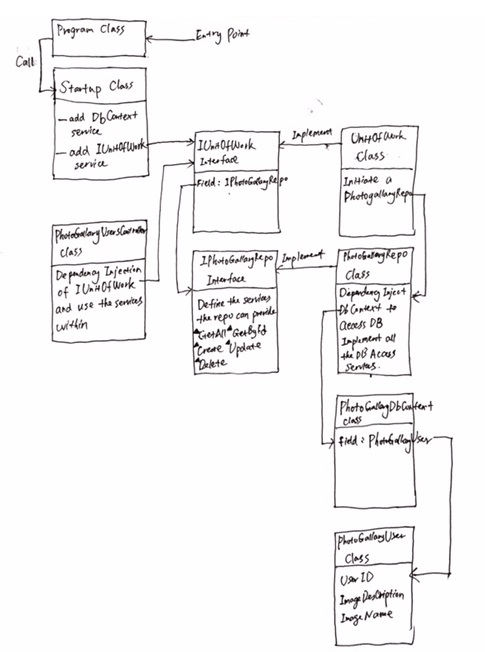 Program Class
Entry Point
Call
Startup Class
- add DbContext
service
- add IUnitOfWork
service
IUnitOfWork
Interface
Field : IPhotoGallaryRepo
Implement
UnitOfWork
Class
Initiate a
PhotogallaryRepo
PhotoGallaryUsersController
class
Dependency Injection
of IUnitOfWork
and use the services
within
IPhotoGallaryRepo
Interface
Define the services
the repo can provide
GetAll GetById
Create Update
Delete
Implement
PhotoGallaryRepo
Class
Dependency Inject
DbContext to
access DB
Implement all
the DB Access
Services.
PhotoGallaryDbContext
class
Field : PhotoGallaryUser
PhotoGallaryUser
Class
User ID
ImageDescription
ImageName